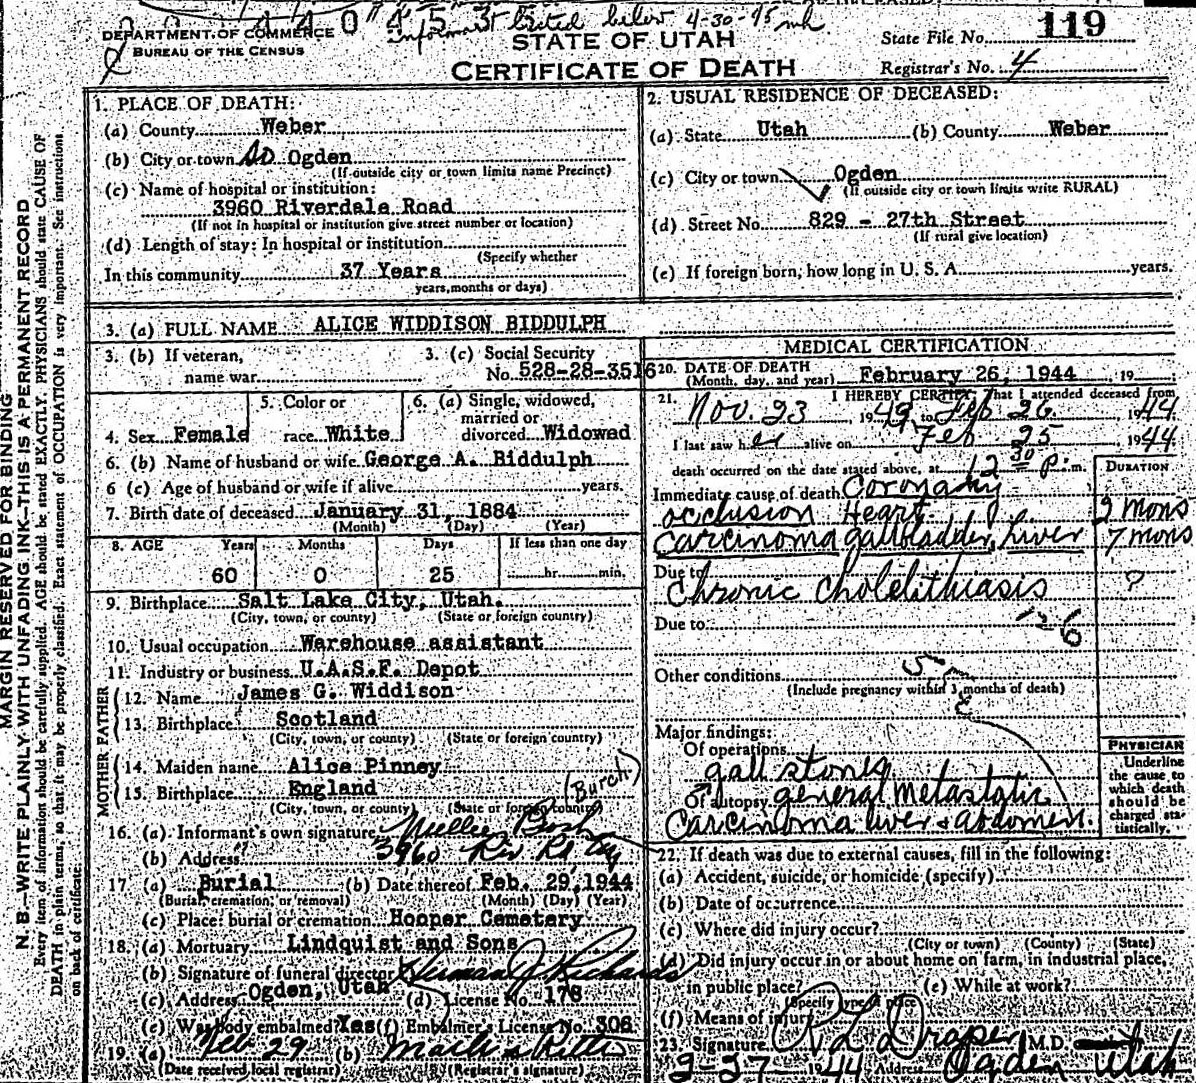 0 4 4 0 4 5 3 Informant listed below 4-30-45 mh
DEPARTMENT OF COMMERCE
BUREAU OF THE CENSUS
STATE OF UTAH
CERTIFICATE OF DEATH
State File No. 119
Registrar's No. 4
MARGIN RESERVED FOR BINDING
N. B.—WRITE PLAINLY WITH UNFADING INK—THIS IS A PERMANENT RECORD
Every item of information should be carefully supplied. AGE should be stated EXACTLY. PHYSICIANS should state CAUSE OF
DEATH in plain terms, so that it may be properly classified. Exact statement of OCCUPATION is very important. See instructions
on back of certificate.
1. PLACE OF DEATH:
(a) County Weber
(b) City or town So Ogden
(If outside city or town limits name Precinct)
(c) Name of hospital or institution:
3960 Riverdale Road
(If not in hospital or institution give street number or location)
(d) Length of stay: In hospital or institution
(Specify whether
In this community 37 Years
years, months or days)
2. USUAL RESIDENCE OF DECEASED:
(a) State Utah (b) County Weber
(c) City or town Ogden
(If outside city or town limits write RURAL)
(d) Street No. 829 - 27th Street
(If rural give location)
(e) If foreign born, how long in U. S. A. years.
3. (a) FULL NAME ALICE WIDDISON BIDDULPH
3. (b) If veteran,
name war
3. (c) Social Security
No. 528-28-3516
4. Sex Female
5. Color or
race White
6. (a) Single, widowed,
married or
divorced Widowed
6. (b) Name of husband or wife George A. Biddulph
6 (c) Age of husband or wife if alive years.
7. Birth date of deceased January 31, 1884
(Month) (Day) (Year)
8. AGE Years Months Days If less than one day
60 0 25 hr. min.
9. Birthplace Salt Lake City, Utah.
(City, town, or county) (State or foreign country)
10. Usual occupation Warehouse assistant
11. Industry or business U.A.S.F. Depot
FATHER
12. Name James G. Widdison
13. Birthplace Scotland
(City, town, or county) (State or foreign country)
MOTHER
14. Maiden name Alice Pinney
15. Birthplace England
(City, town, or county) (State or foreign country)
(Burch)
16. (a) Informant's own signature Nellie
(b) Address 3960 Riv Rd
17. (a) Burial (b) Date thereof Feb. 29, 1944
(Burial, cremation, or removal) (Month) (Day) (Year)
(c) Place: burial or cremation Hooper Cemetery
18. (a) Mortuary Lindquist and Sons
(b) Signature of funeral director Herman J Richards
(c) Address Ogden, Utah (d) License No. 178
(e) Was body embalmed? Yes (f) Embalmer's License No. 306
19. (a) Feb 29 (b)
(Date received local registrar) (Registrar's signature)
MEDICAL CERTIFICATION
20. DATE OF DEATH
(Month, day, and year) February 26, 1944, 19
21. I HEREBY CERTIFY, That I attended deceased from
Nov. 23 1949, to Feb 26 1944
I last saw her alive on Feb 25 1944
death occurred on the date stated above, at 12 30 p. m.
DURATION
Immediate cause of death Coronary
occlusion Heart 2 mons
Carcinoma gallbladder, Liver 7 mons
Due to
Chronic Cholelithiasis ?
Due to
126
Other conditions
(Include pregnancy within 3 months of death)
Major findings:
Of operations
gall stones
Of autopsy general Metastatic
Carcinoma liver & abdomen
PHYSICIAN
Underline
the cause to
which death
should be
charged sta-
tistically.
22. If death was due to external causes, fill in the following:
(a) Accident, suicide, or homicide (specify)
(b) Date of occurrence
(c) Where did injury occur?
(City or town) (County) (State)
(d) Did injury occur in or about home on farm, in industrial place,
in public place? (e) While at work?
(Specify type of place
(f) Means of injury
23. Signature R L Draper M.D.
2-27-1944 Address Ogden Utah